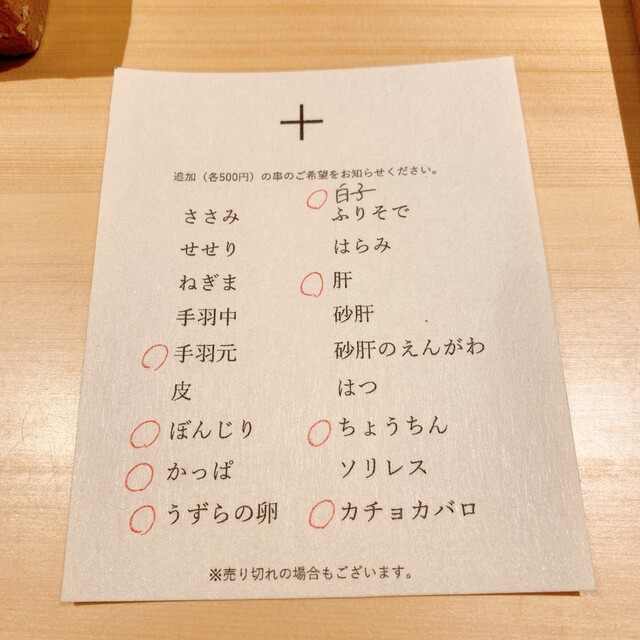 ＋
追加（各500円）の串のご希望をお知らせください。
ささみ
せせり
ねぎま
手羽中
手羽元
皮
ぼんじり
かっぱ
うずらの卵
白子
ふりそで
はらみ
肝
砂肝
砂肝のえんがわ
はつ
ちょうちん
ソリレス
カチョカバロ
※売り切れの場合もございます。